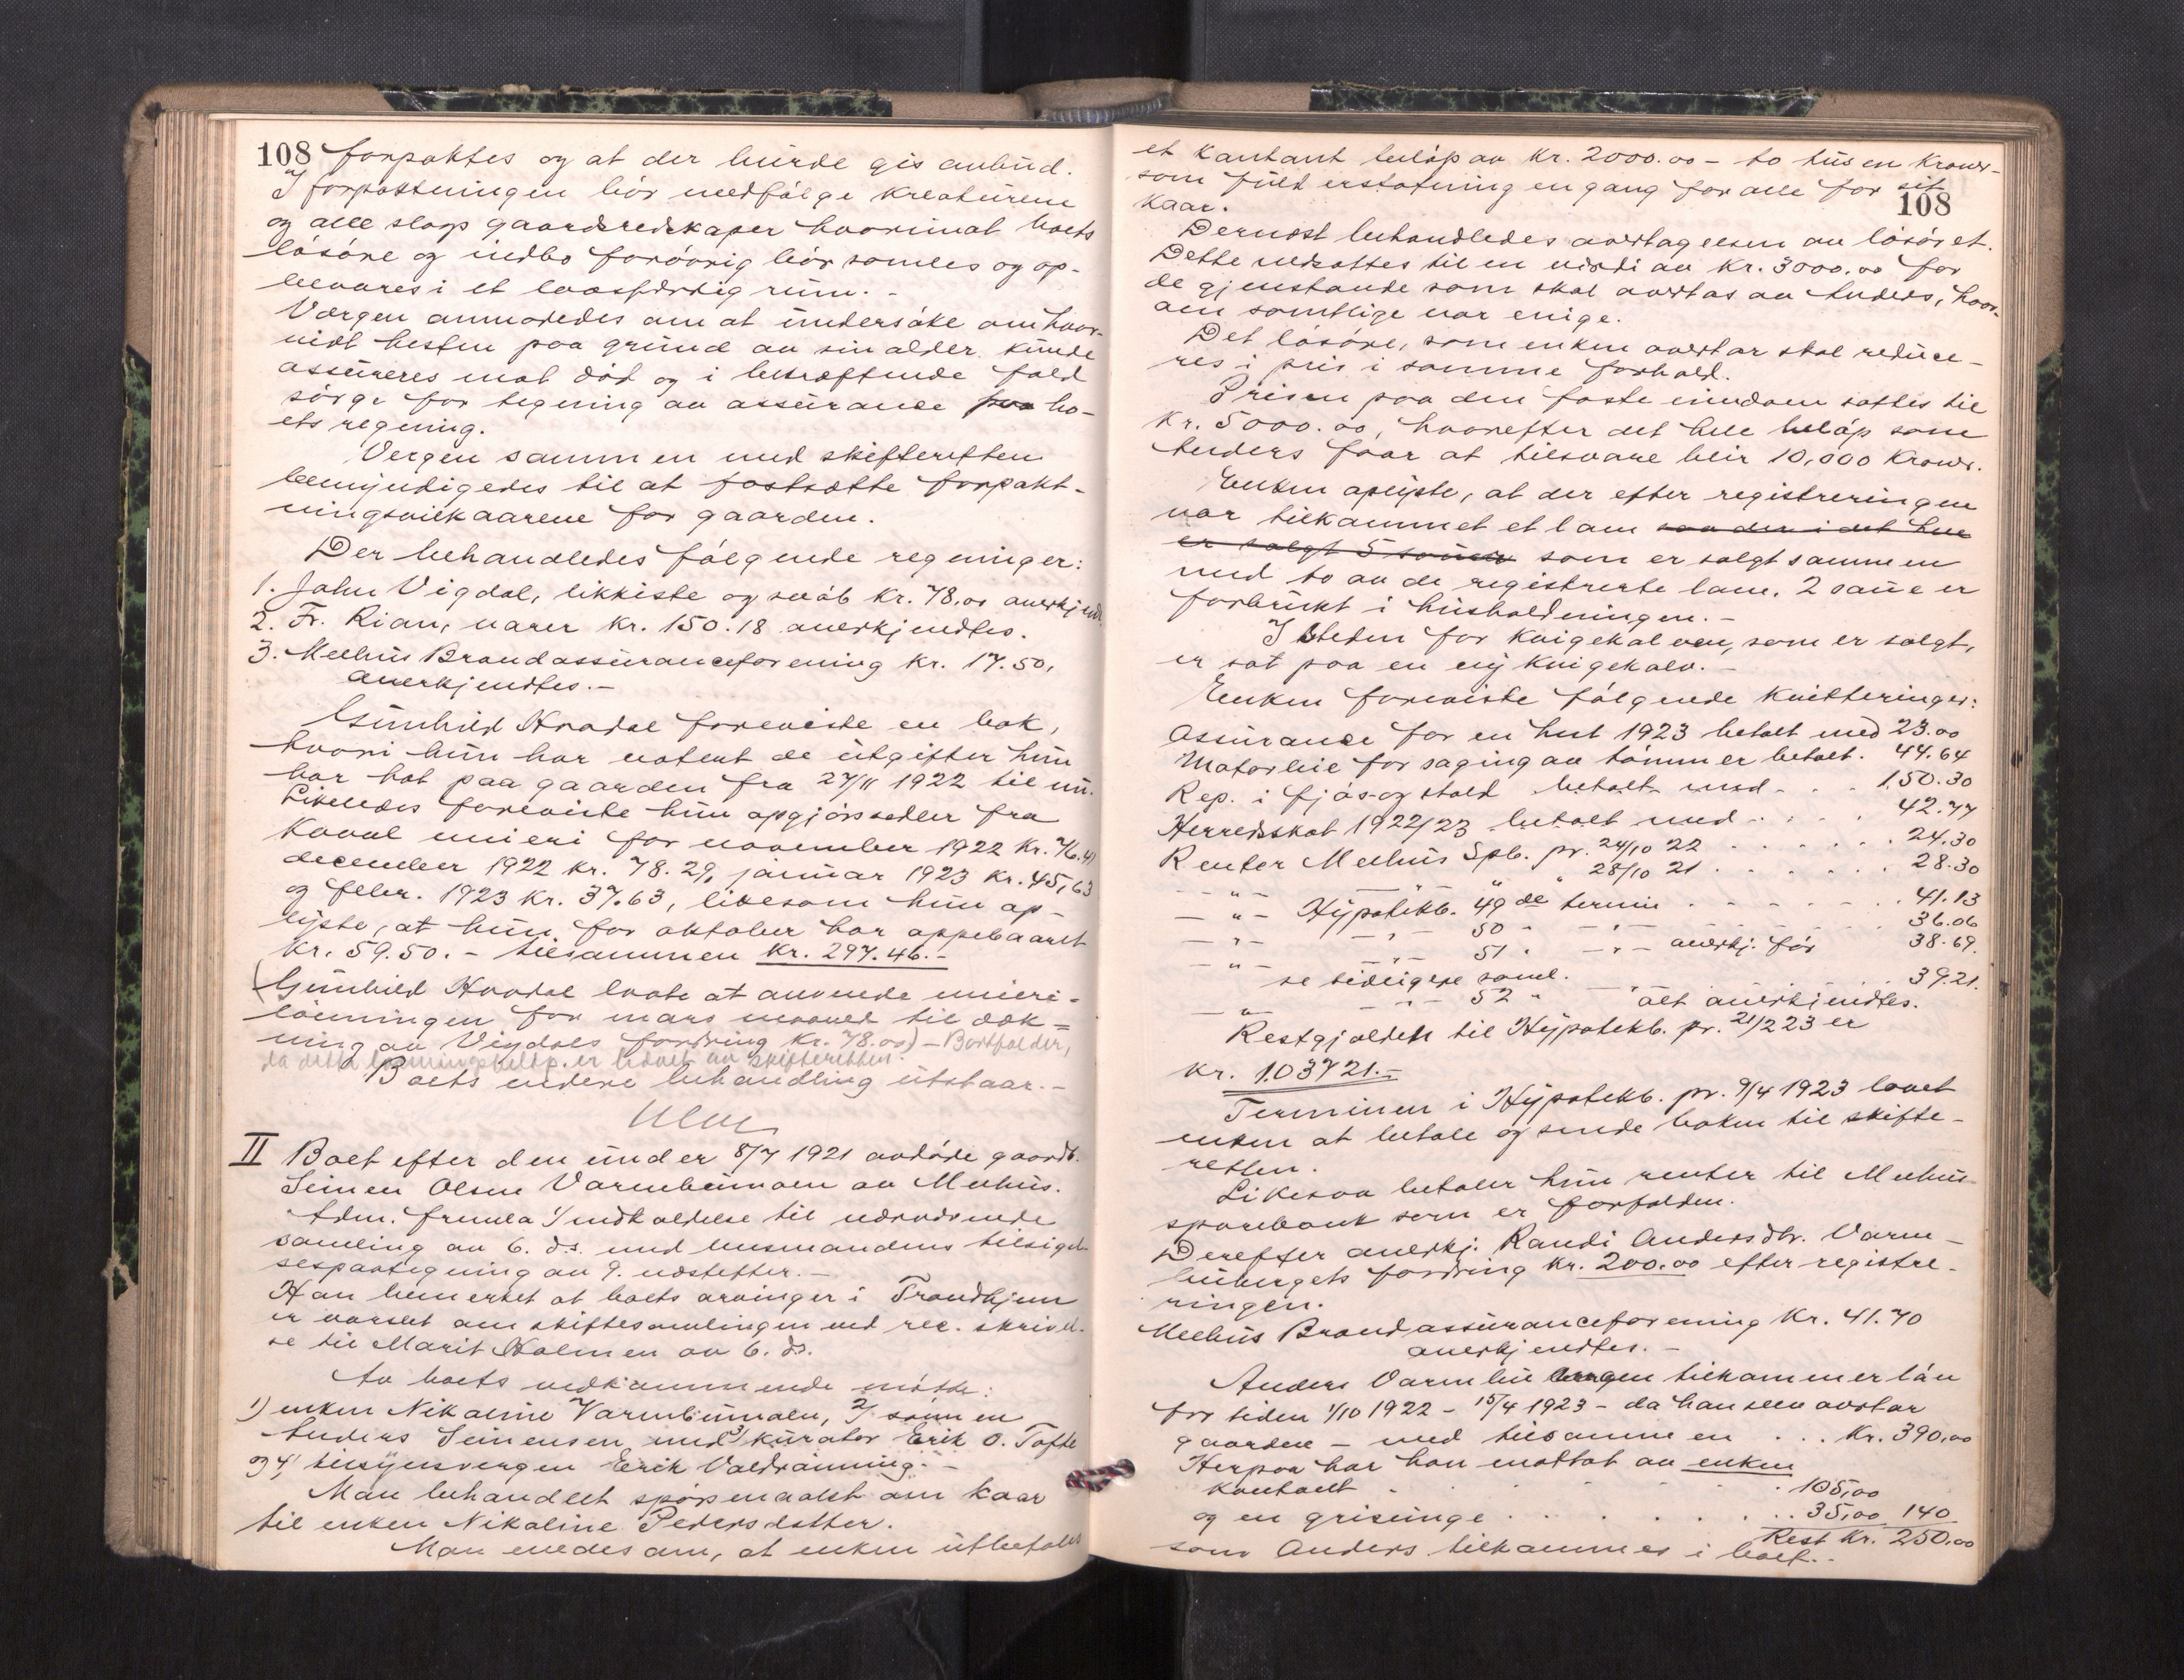 108 forpaktes og at der burde gis anbud.
I forpaktningen bør medfølge kreaturene
og alle slags gaardsredskaper hvorimot boets
løsøre og indbo forøvrig bør samles og op-
bevares i et laasfærdig rum. -
Vergen anmodedes om at undersøke om hvor-
vidt hesten paa grund av sin alder kunde
assureres mot død og i bekræftende fald
sørge for tegning av assurance paa bo-
ets regning.
Vergen sammen med skifteretten
bemyndigedes til at fastsætte forpakt-
ningsvilkaarene for gaarden.
Der behandledes følgende regninger:
1. John Vigdal, likkiste og svøb kr. 78.00 anerkjend.
2. Fr. Rian, varer kr. 150.18 anerkjendtes.
3. Melhus Brandassuranceforening kr. 17.50,
anerkjendtes. -
Gunhild Hovdal foreviste en bok,
hvori hun har notert de utgifter hun
har hat paa gaarden fra 27/11 1922 til nu.
Likeledes foreviste hun opgjørssedler fra
Kvaal meieri for november 1922 kr. 76.41
december 1922 kr. 78.29, januar 1923 kr. 45,63
og febr. 1923 kr. 37.63, likesom hun op-
lyste, at hun for oktober har oppebaaret
kr. 59.50. - tilsammen kr. 297.46. -
(Gunhild Hovdal lovte at anvende meieri-
lønningen for mars maaned til dæk=
ning av Vigdals fordring kr. 78.00) - Bortfalder,
da dette er betalt av skifteretten.
Boets videre behandling utstaar. -
II Boet efter den under 8/7 1921 avdøde gaardb.
Seinen Olsen Varmbumoen av Melhus.
Adm. fremla 1/ indkaldelse til nærværende
samling av 6. ds. med lensmandens tilsigel-
sespaategning av 9. næstefter. -
Han bemerket at boets arvinger i Trondhjem
er varslet om skiftesamlingen ved rec. skrivel-
se til Marit Holmen av 6. ds.
Av boets vedkommende møtte:
1) enken Nikoline Varmbumoen, 2/ sønnen
Anders Seinensen med 3/ kurator Erik O. Tofte
og 4/ tilsynsvergen Erik Valdrømning. -
Man behandlet spørsmaalet om kaar
til enken Nikoline Pedersdatter.
Man enedes om, at enken utbetales
et kontant beløp av kr. 2000.00 - to tusen kroner -
som fuld erstatning en gang for alle for sit
kaar.
108
Dernæst behandledes overtagelsen av løsøret.
Dette nedsattes til en værdi av kr. 3000.00 for
de gjenstande som skal overtas av Anders, hvor-
om samtlige var enige.
Det løsøre, som enken overtar skal reduce-
res i pris i samme forhold.
Prisen paa den faste eiendom sattes til
kr. 5000.00, hvorefter det hele beløp som
Anders faar at tilsvare blir 10,000 kroner.
Enken oplyste, at der efter registreringen
var tilkommet et lam saa der i det hele
er solgt 5 sauer som er solgt sammen
med to av de registrerte lam. 2 saue er
forbrukt i husholdningen. -
I steden for kvigekalven, som er solgt,
er sat paa en ny kvigekalv. -
Enken foreviste følgende kvitteringer:
Assurance for en hest 1923 betalt med 23.00
Motorleie for saging av tømmer betalt. 44.64
Rep. i fjøs og stald betalt med - . . 150.30
Herredskat 1922/23 betalt med . . . . 42.77
Renter Melhus Spb. pr. 24/10 22 . . . . . . . 24.30
" " 28/10 21 . . . . . . . 28.30
- " - Hypotekb. 49 de termin . . . . . . . 41.13
- " - - " - 50 " - " - . . . 36.06
- " - - " - 51 " - " - anerkj. før 38.69.
se tidligere saml.
- " - - " - 52 " - " - 39.21.
alt anerkjendtes.
Restgjælden til Hypotekb. pr. 21/2 23 er
kr. 1.037 21. -
Terminen i Hypotekb. pr. 9/4 1923 lovet
enken at betale og sende boken til skifte-
retten.
Likesaa betaler hun renter til Melhus
sparebank som er forfalden.
Derefter anerkj. Randi Andersdtr. Varm-
bubergets fordring kr. 200.00 efter registre-
ringen.
Melhus Brandassuranceforening kr. 41.70
anerkjendtes. -
Anders Varmbumoen tilkommer løn
for tiden 1/10 1922 - 15/4 1923 - da han selv overtar
gaarden - med tilsammen . . . kr. 390,00
Herpaa har han mottat av enken
kontant . . . . . . . 105,00
og en griseunge . . . . . . . 35,00 140
Rest kr. 250.00
som Anders tilkommer i boet. -